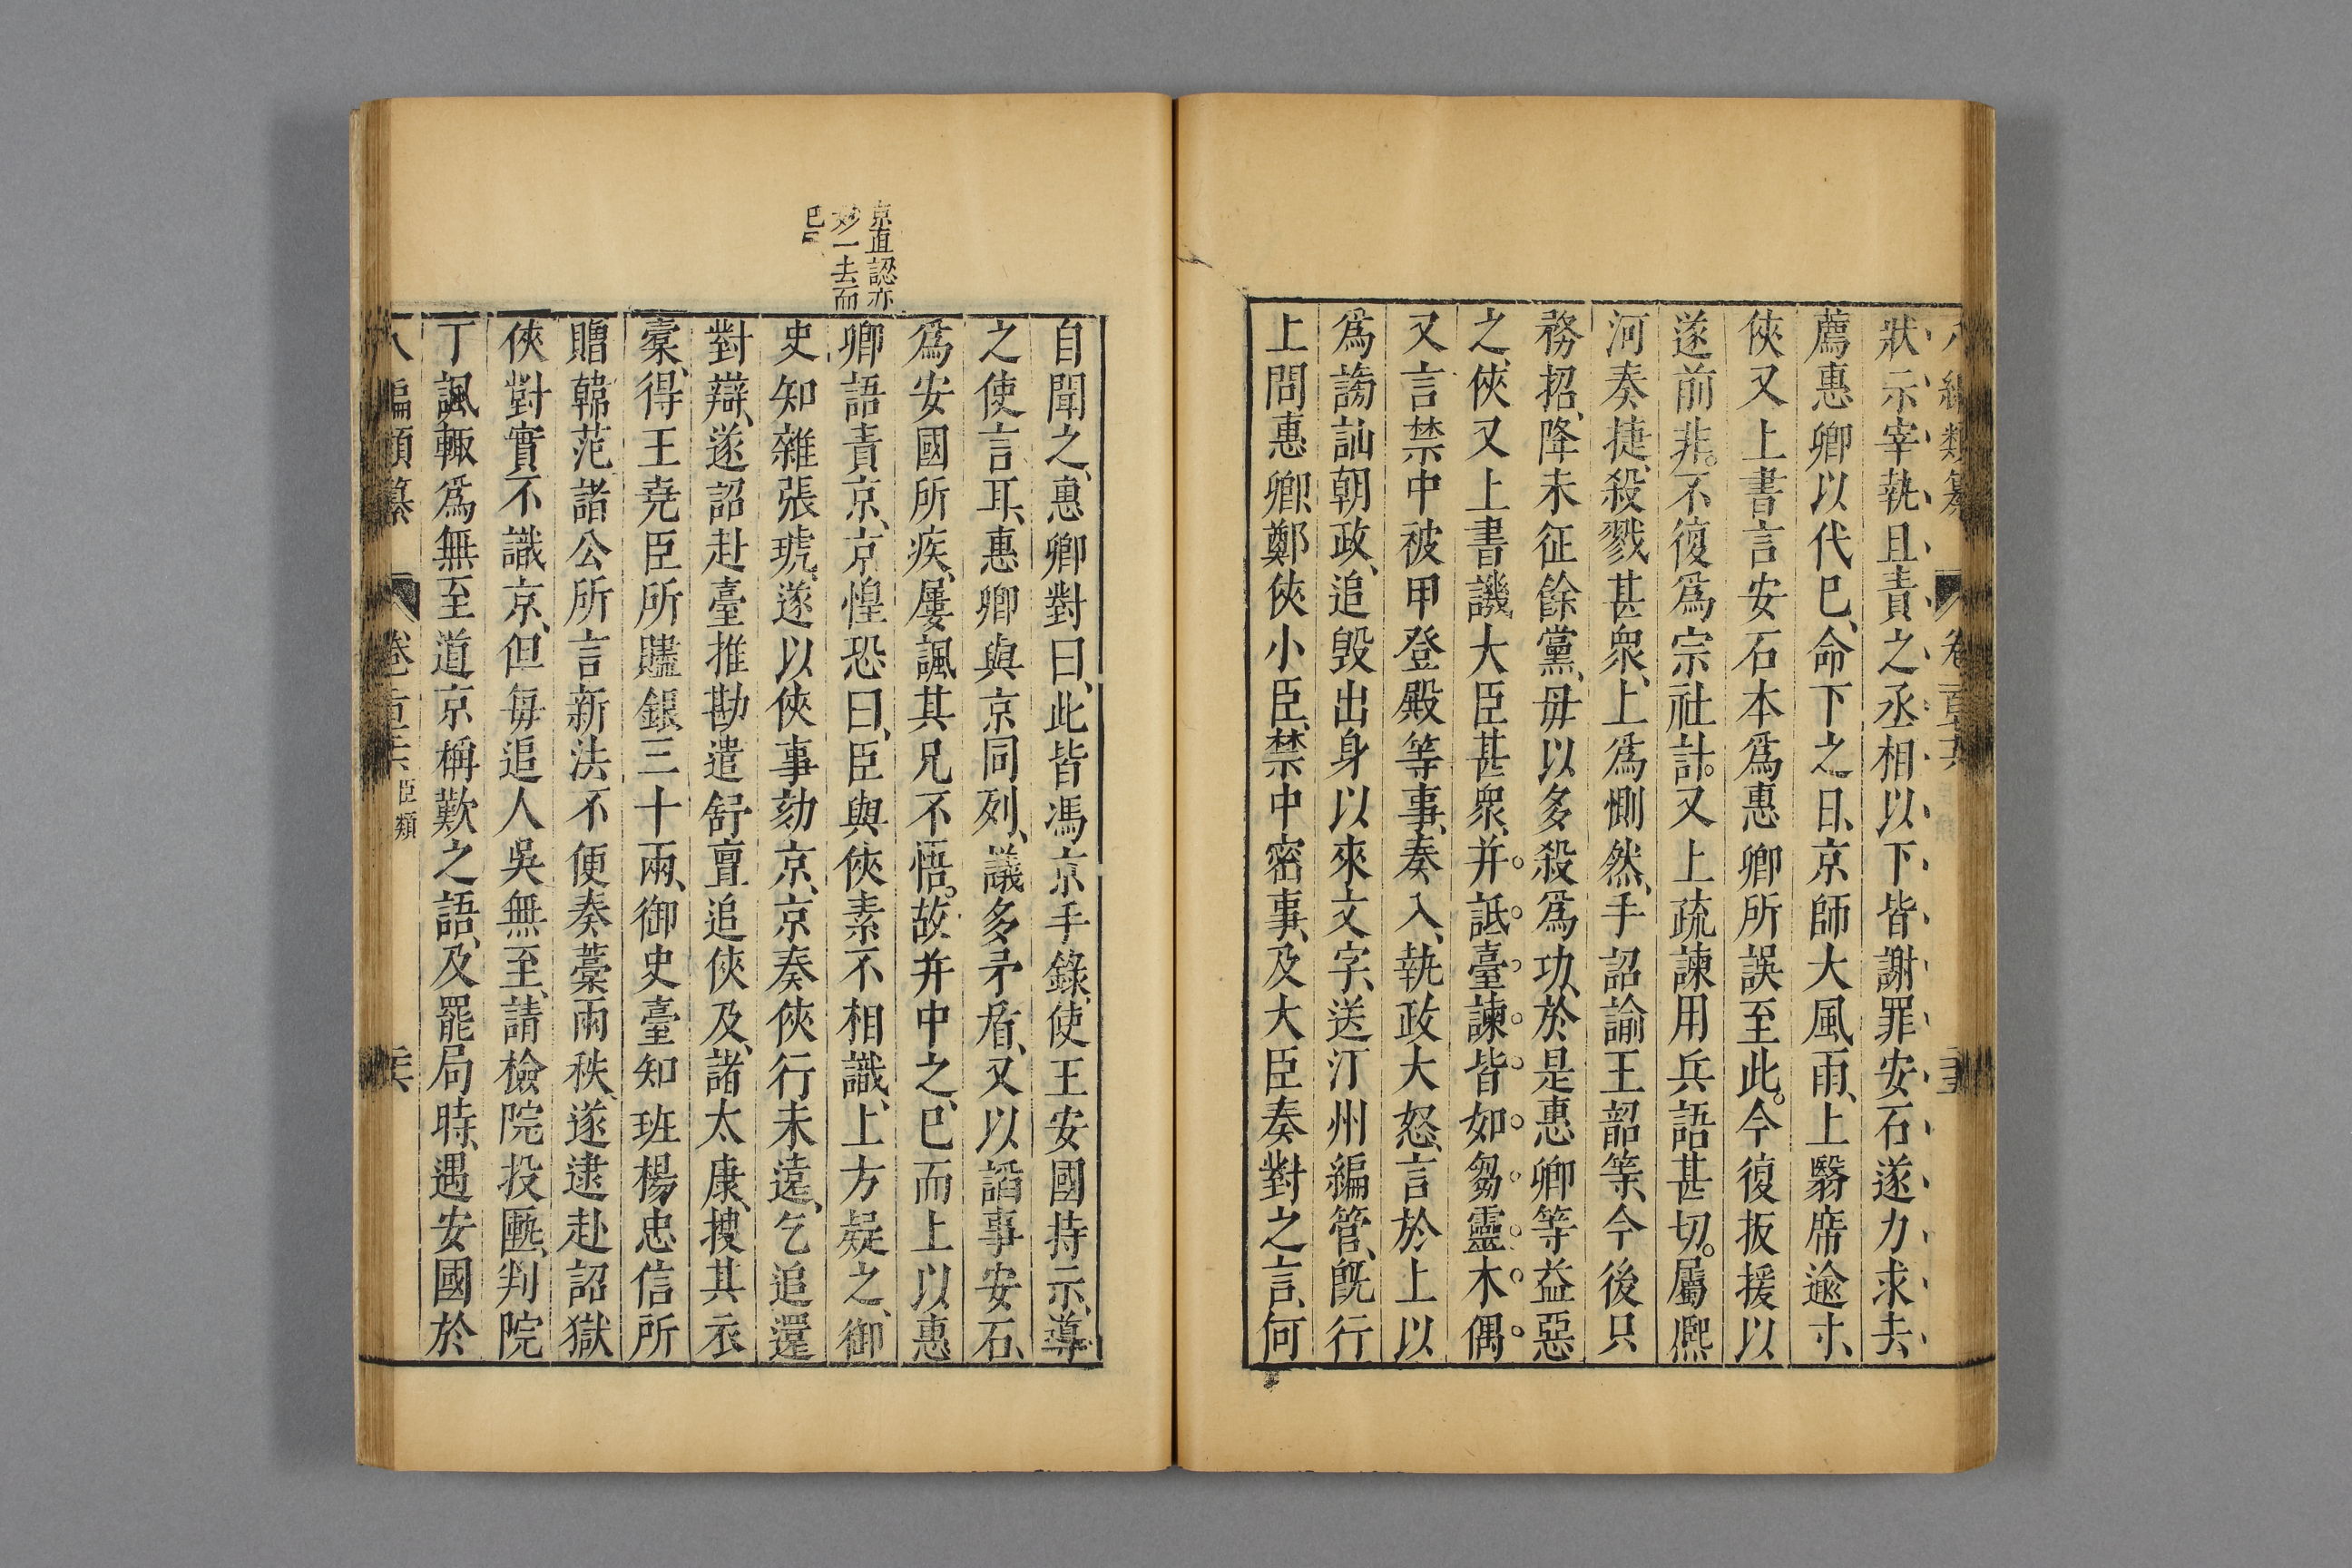 狀示宰執且責之丞相以下皆謝罪安石遂力求去
薦惠卿以代巳、命下之日、京師大風雨、上翳席逾寸、
俠又上書言安石本爲惠卿所誤至此。今復扳援以
遂前非。不復爲宗社計。又上疏諫用兵語甚切。屬熈
河奏捷、殺戮甚衆、上爲惻然、手詔諭王韶等、今後只
務招、降未征餘黨、毋以多殺爲功、於是惠卿等益惡
之、俠又上書譏大臣甚衆、并詆臺諫皆如芻靈木偶
又言禁中被甲登殿等事、奏入、執政大怒、言於上以
爲謗訕朝政、追毁出身以來文字、送汀州編管、旣行
上問惠卿、鄭俠小臣、禁中密事、及大臣奏對之言、何
京直認亦
妙一去而
巳
自聞之、惠卿對曰、此皆馮京手錄、使王安國持示、導
之使言耳、惠卿與京同列、議多矛盾、又以謟事安石、
爲安國所疾、屢諷其兄不悟。故并中之、巳而上以惠
卿語責京、京惶恐曰、臣與俠素不相識、上方疑之、御
史知雜張琥、遂以俠事劾京、京奏俠行未遠、乞追還
對辯、遂詔赴臺推勘遣舒亶追俠及、諸太康、搜其衣
橐、得王堯臣所贐銀三十兩、御史臺知班楊忠信所
贈韓范諸公所言新法不便奏藁兩秩、遂逮赴詔獄
俠對實不識京、但每追人吳無至、請檢院投匭、判院
丁諷輒爲無至道京稱歎之語、及罷局時、遇安國於
八編類纂 卷百六 臣類